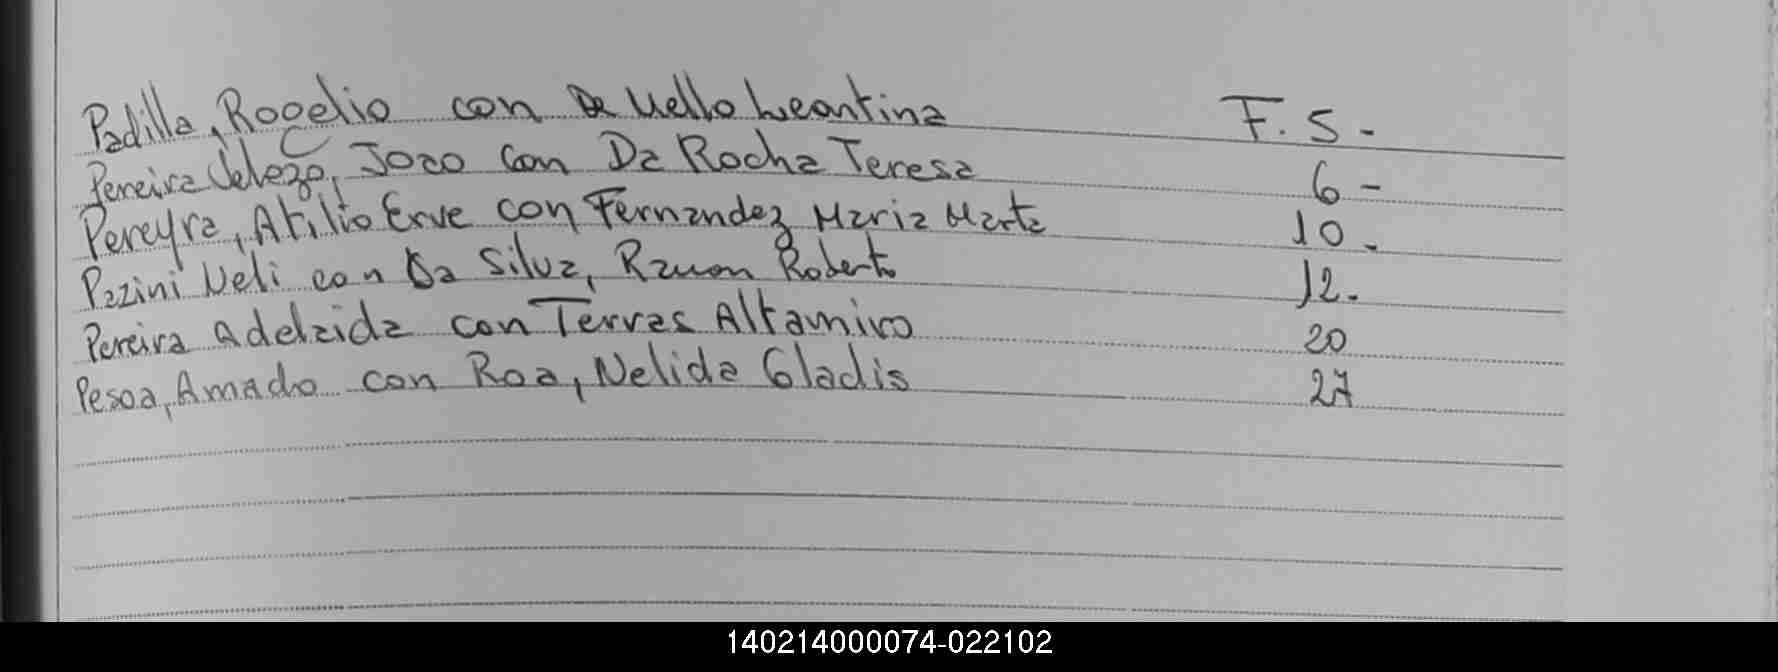 Padilla, Rogelio con De Mello Leontina F. 5 -
Pereira Velezo, Joao con Da Rocha Teresa 6 -
Pereyra, Atilio Erve con Fernandez Maria Marta 10 -
Pazini Neli con Da Silva, Ramon Roberto 12 -
Pereira Adelaida con Terras Altamiro 20
Pesoa, Amado con Roa, Nelida Gladis 27
140214000074-022102